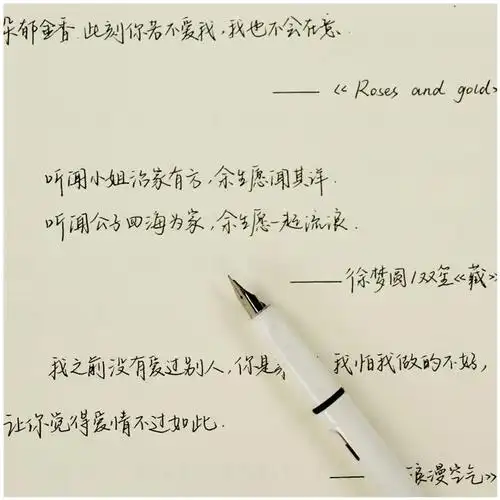 朵郁金香.此刻你若不爱我,我也不会在意.
——《Roses and gold》
听闻小姐治家有方,余生愿闻其详.
听闻公子四海为家,余生愿一起流浪.
——徐梦圆/双笙《藏》
我之前没有爱过别人,你是 我怕我做的不好,
让你觉得爱情不过如此.
—— 浪漫空气》